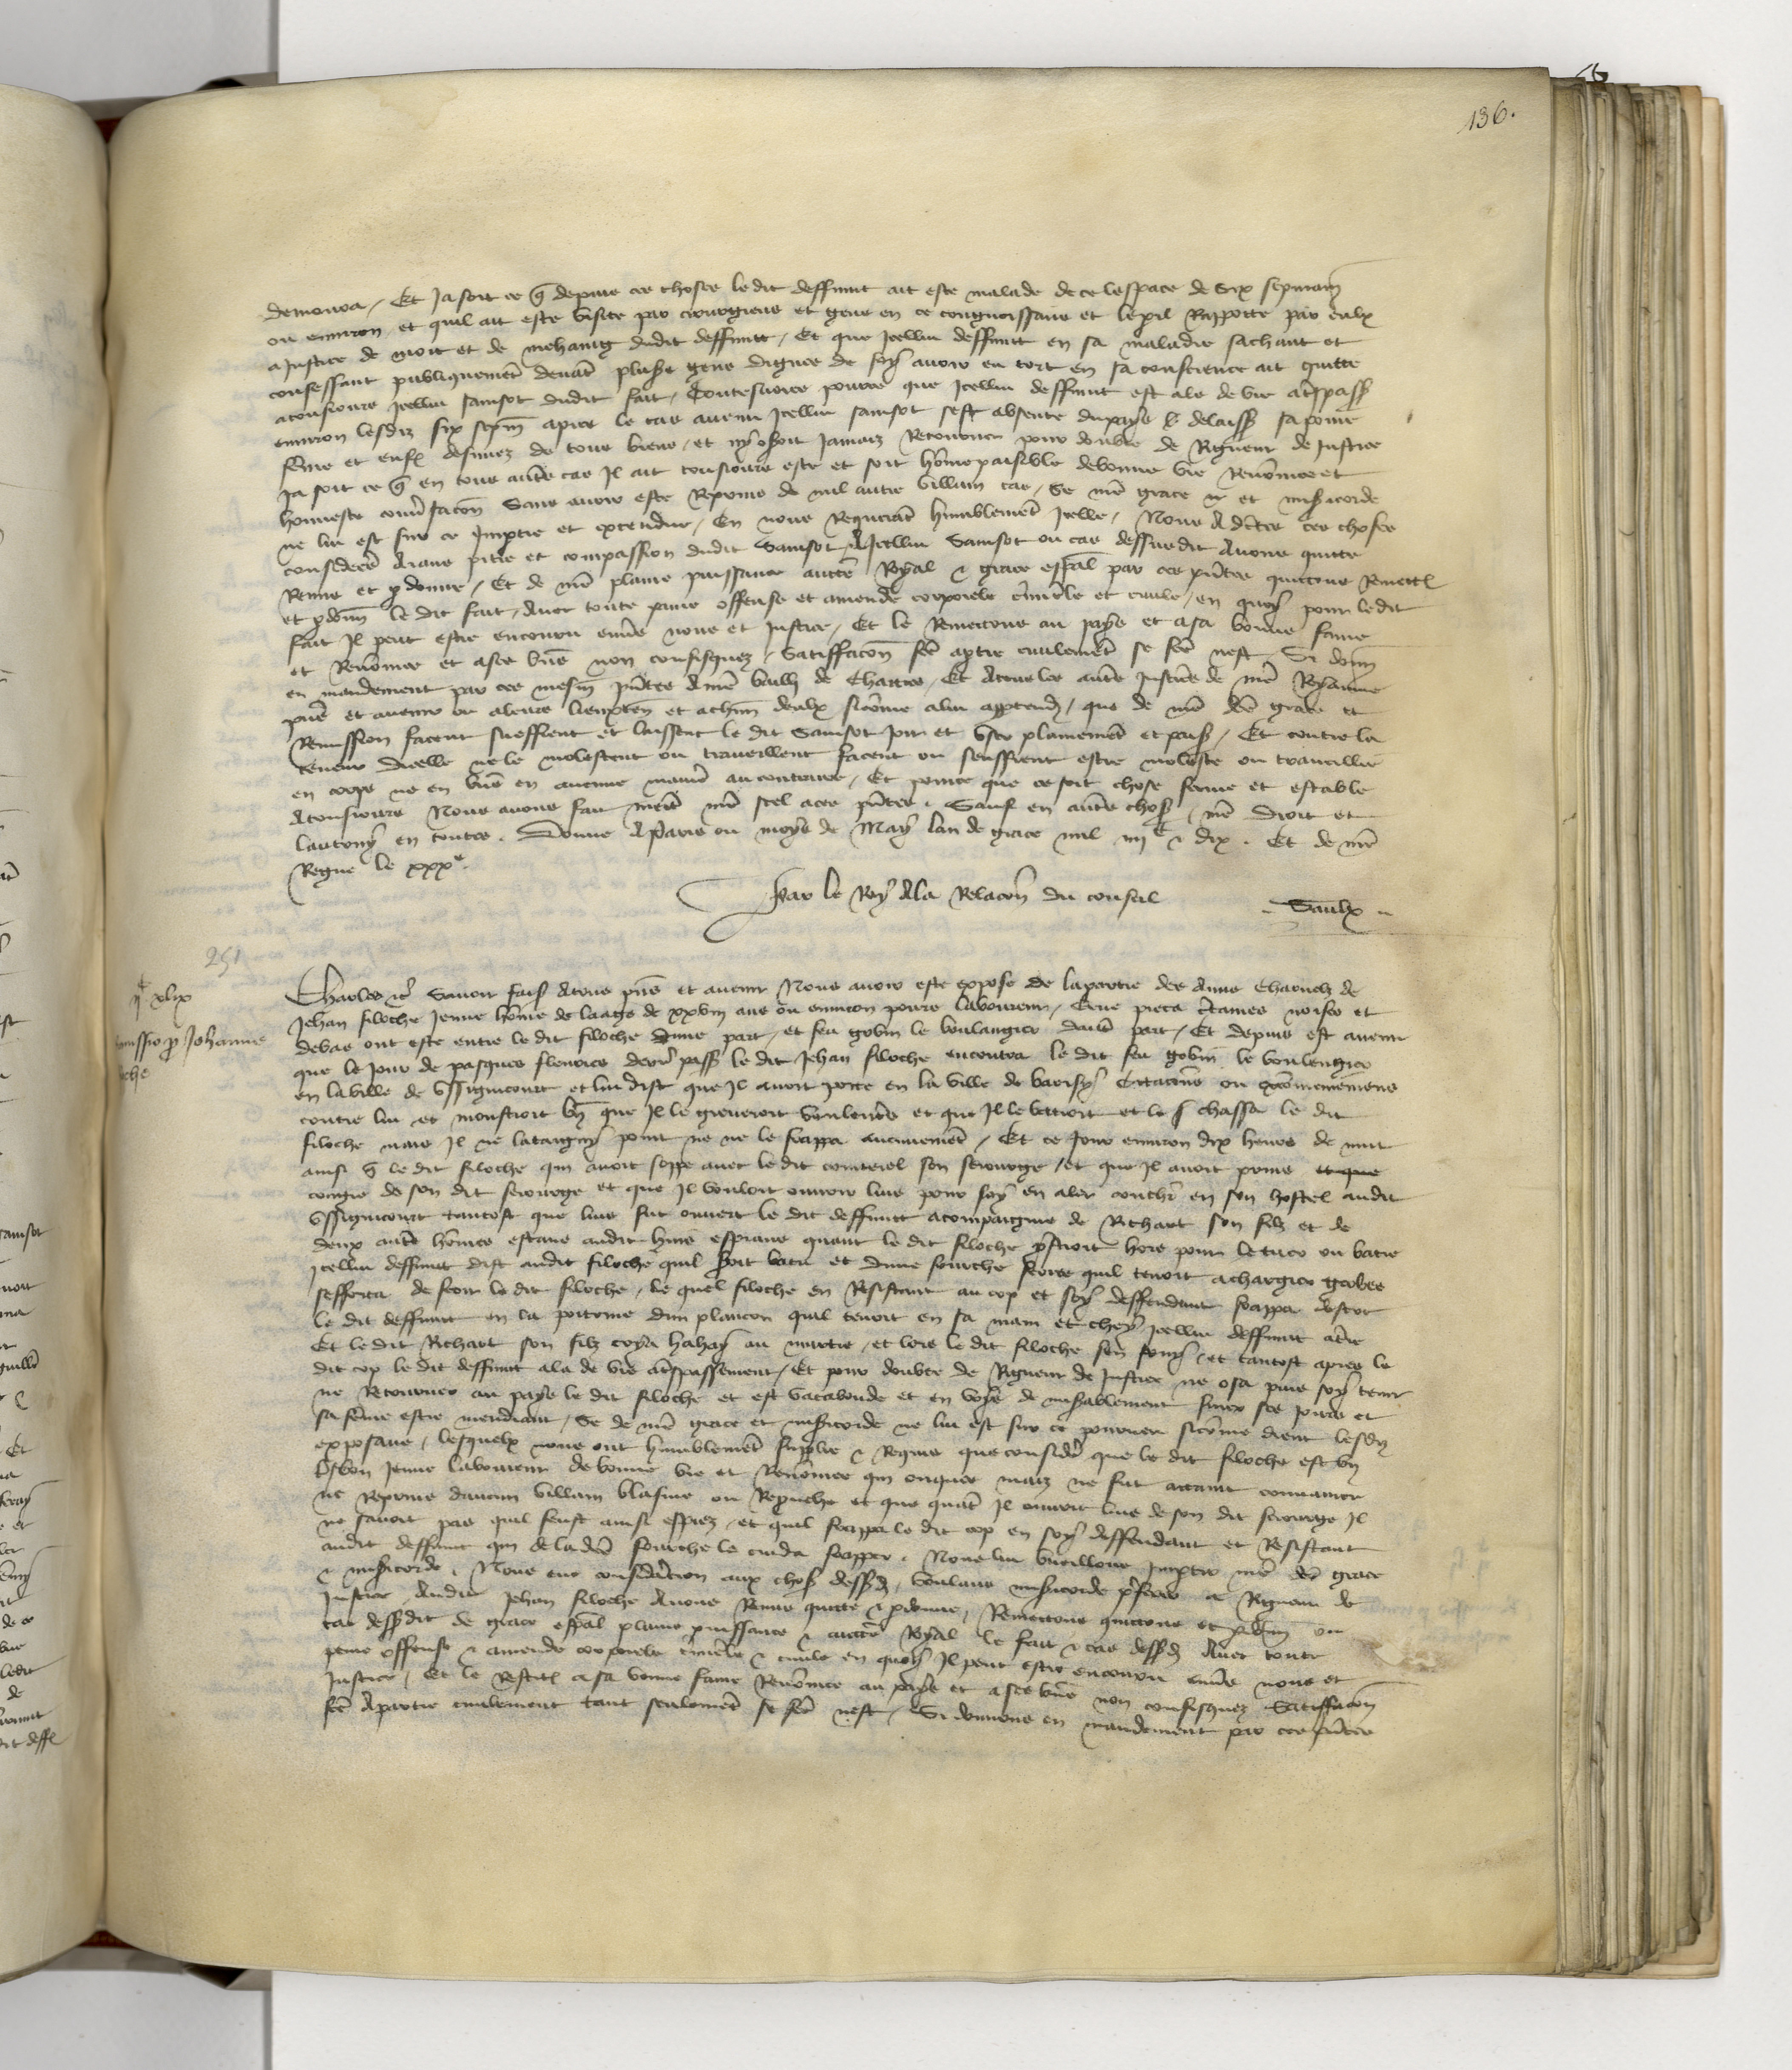 136.
demoura / Et Ja soit ce q̃ depuis ces choses ledit deffunct ait este malade de ce lespace de Six sepmain̄
ou environ et quil ait este visite par cirurgiens et gens en ce congnoissans et le peril Rapporte par eulx
a Justice de mort et de mehaing dudit deffunct / Et que Icellui deffunct en sa maladie sachant et
confessant publiquemēt devāt plus̄rs gens dignes de foy avoir eu tort en sa conscience ait quitte
a tousiours Icellui Samsot dudit fait / Toutesvoies pource que Icellui deffunct est ale de vie a tr̄spass̄
environ lesdiz six sepm̄ apres le cas avenu Icellui Samsot sest absente du pays & delaiss̄ sa povre
fēme et enfs̄ desnuez de tous biens / et ny oseroit Jamais Retourner pour doubte de Rigueur de Justice
Ja soit ce q̃ en tous autr̄s cas Il ait tousiours este et soit hōme paisible de bonne vie Renōmee et
honneste conv̄sacōn Sans avoir este Repris de nul autre villain cas / Se nr̄e grace et mis̄icorde
ne lui est sur ce Impartie et extendue / En nous Requerāt humblemēt Icelle / Nous Adc̄tes ces choses
considerees Aians pitie et compassion dudit Samsot A Icellui Samsot ou cas dessusdit Avons quitte
Remis et p̱donne / Et de nr̄e plaine puissance auctē Royal & grace esp̄al par ces pn̄tes quictons Remett̄
et p̱dōnn̄ le dit fait / Avec toute paine offense et amende corporele crimīele et civile / en quoy pour ledit
fait Il peut estre encouru envers nous et Justice / Et le Remettons au pays et a sa bonne fame
et Renōmee et a ses biēs non confisquez / Satisfacōn fc̄e a p̱tie civilemēt se fc̄e nest / Si donn̄
en mandement par ces mesm̄ pn̄tes A nr̄e bailli de Chartres / Et A tous les autr̄s Justic̄rs de nr̄e Royaume
pn̄s et avenir ou a leurs lieuxten̄ et a chūn deulx sicōme a lui app̱tendra / que de nr̄e dc̄e grace et
Remission facent sueffrent et laissent le dit Samsot Joir et user plainemēt et paisib̄ / Et contre la
teneur dicelle ne le molestent ou travaillent facent ou seuffrent estre moleste ou travaillie
en corps ne en biēs en aucune maniē au contraire / Et pource que ce soit chose ferme et estable
A tousiours Nous avons fait mectr̄ nr̄e scel a ces pn̄tes . Sauf en autr̄s choses nr̄e droit et
lautruy en toutes . Donne A paris ou moys de May lan de grace mil iiijc & dix . Et de nr̄e
Regne le xxxe
Par le Roy A la Relacōn du conseil
Saulx
251
ijc xlix
Remissio p̱ Johanne
filoche
Charles &c̄ Savoir fais̄ A tous pn̄s et avenir Nous avoir este expose de la partie des Amis Charnelz de
Jehan filoche Jeune hōme de laage de xxviij ans ou environ povre laboureur / Cōme pieca c̄taines noises et
debas ont este entre le dit filoche dune part / et feu gobin le boulangier dautr̄ part / Et depuis est avenu
que le jour de pasques flouries derr̄ pass̄ le dit Jehan filoche encontra le dit feu gobin le boulengier
en la ville de Ussignicourt et lui dist que Il avoit porte en la ville de barisy Citacions ou excōmuniemens
contre lui et monstroit bien que Il le greveroit voulentrs et que Il le batroit et le chassa le dit
filoche mais Il ne lataigny point ne ne le frappa aucunemēt / Et ce Jour environ dix heures de nuit
ainsi q̃ le dit filoche qui avoit soppe avec le dit conterel son serourge / et que Il avoit prins et que
congie de son dit serourge et que Il vouloit ouvrir luis pour soy en aler couchr̄ en son hostel audit
Ussignicourt tantost que luis fut ouvert le dit deffunct acompaigne de Richart son filz et de
deux autr̄s hōmes estans audit huis espians quant le dit filoche ystroit hors pour le tuer ou batre
Icellui deffunct dist audit filoche quil seroit batu et dune fourche ferree quil tenoit a chargier gerbes
sefforca de ferir le dit filoche / Le quel filoche en Resistant au cop et soy deffendant frappa destoc
le dit deffunct en la poitrine dun plancon quil tenoit en sa main et chey Icellui deffunct a tr̄re
Et le dit Richart son filz crya hahay au murtre / et lors le dit filoche sen fouy / et tantost apres le
dit cop le dit deffunct ala de vie a tr̄spassement / Et pour doubte de Rigueur de Justice ne osa puis soy tenir
ne Retourner au pays le dit filoche et est vacabonde et en voye de mis̄ablement finer ses jours et
sa fēme estre mendiant / Se de nr̄e grace et mis̄icorde ne lui est sur ce pourveu sicōme dient lesdiz
exposans / lesquelx nous ont humblemēt supplie & Requis que consider̄ que le dit filoche est un
bon Jeune laboureur de bonne vie et Renōmee qui onques mais ne fut attaint convaincu
ne Reprins daucun villain blasme ou Reprouche et que quāt Il ouvrit luis de son dit serourge Il
ne savoit pas quil feust ainsi espiez / et quil frappa le dit cop en soy deffendant et Resistant
audit deffunct qui de la dc̄e fourche le cuida frapper . Nous lui vueillons Impartir nr̄e dc̄e grace
& mis̄icorde . Nous eue consideracion aux choses dessusd̄ / voulans mis̄icorde pref̄er a Rigueur de
Justice Audit Jehan filoche Avons Remis quitte & p̱donne / Remettons quictons et p̱dōnn̄ ou
cas dessusdit de grace esp̄al plaine puissance & auctē Royal le fait & cas dessusd̄ Avec toute
peine offense & amende corporele crimīele & civile en quoy Il peut estre encouru envers nous et
Justice / Et le Restit̄ a sa bonne fame Renōmee au pays et a ses biēs non confisquez Satisfacōn
fc̄e A partie civilement tant seulemēt se fc̄e nest / Si donnons en mandement par ces pn̄tes